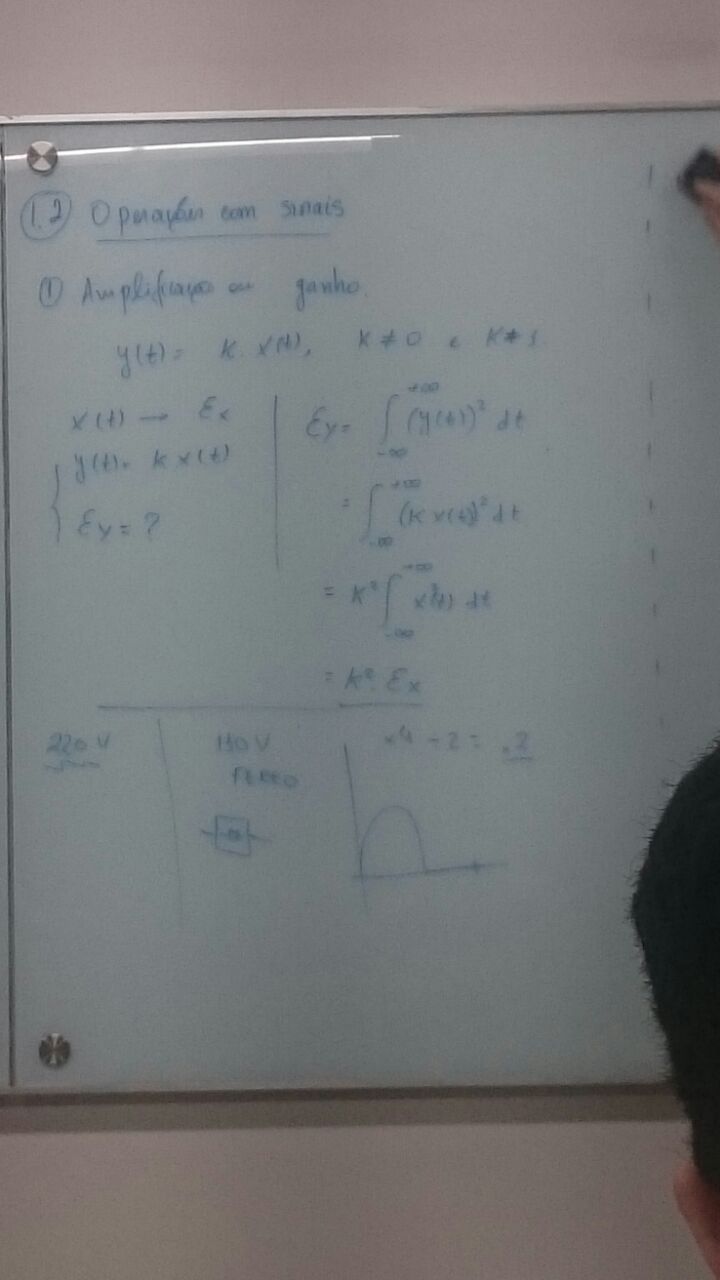 1.2 Operações com sinais
① Amplificação ou ganho.
y(t) = K. x(t), K ≠ 0 e K ≠ 1
x(t) → Ex
y(t) = K x(t)
Ey = ?
Ey = ∫_{-∞}^{+∞} (y(t))² dt
= ∫_{-∞}^{+∞} (K x(t))² dt
= K² ∫_{-∞}^{+∞} x²(t) dt
= K². Ex
220 V